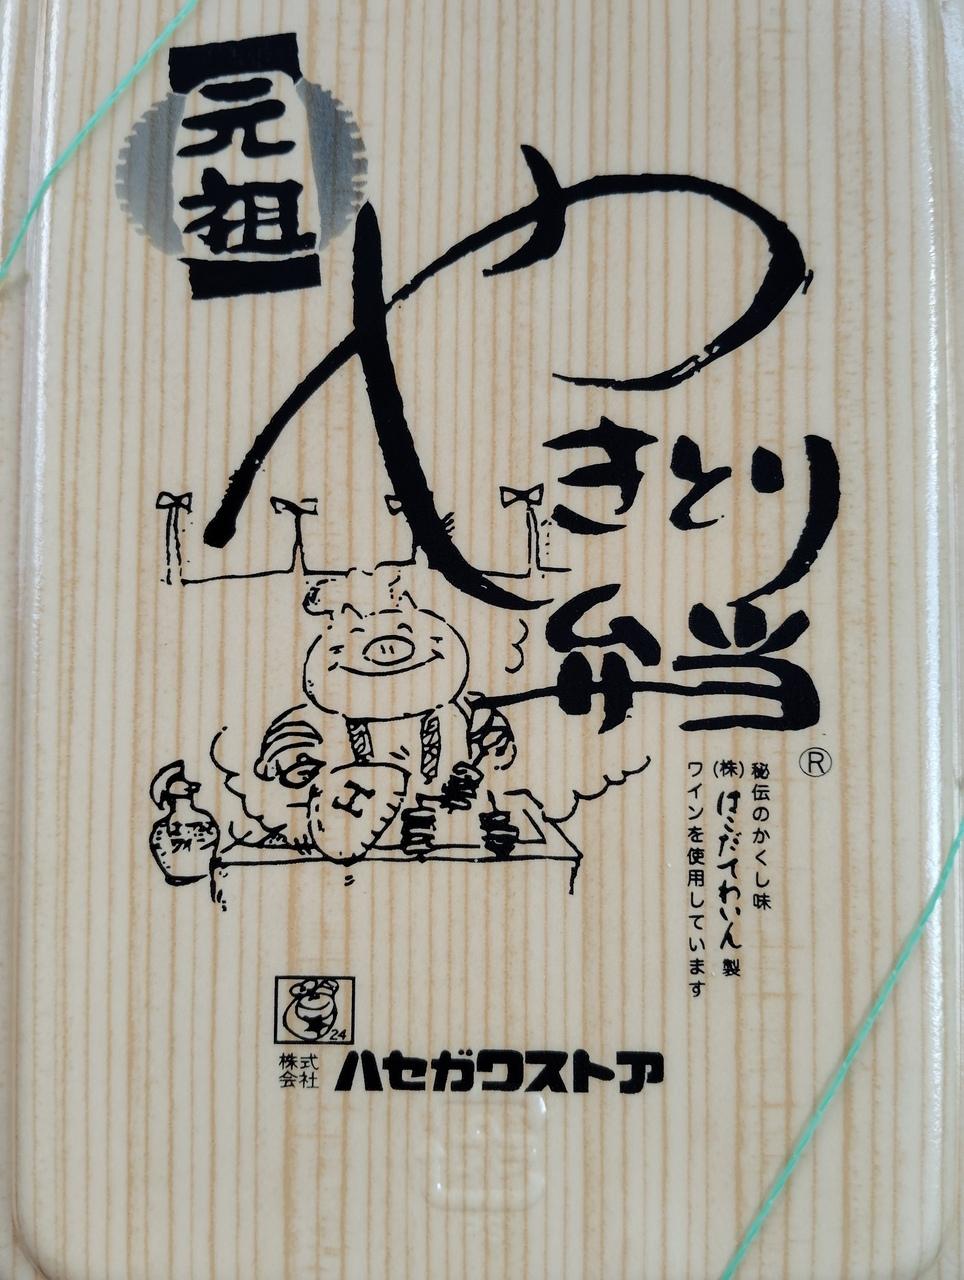 元祖
やきとり
弁当
®
秘伝のかくし味
(株)はこだてわいん製
ワインを使用しています
H
24
株式
会社
ハセガワストア